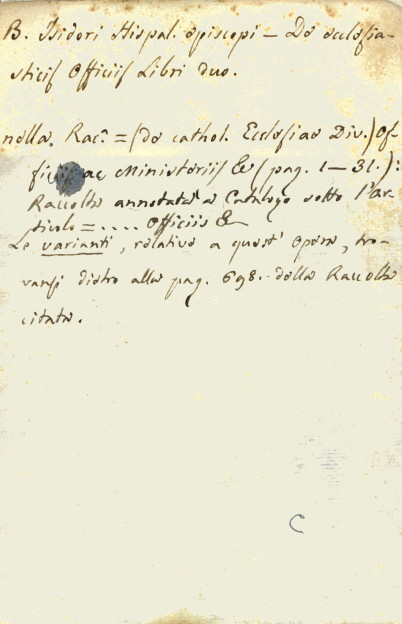 B. Isidori Hispal. episcopi = De ecclesia-
sticis Officiis Libri duo.
nella Rac.ª = (de cathol. Ecclesiae Div.) Of-
ficiis ac Ministeriis & (pag. 1 — 31.):
Raccolta annotata a Catalogo sotto l'ar-
ticolo = .... Officiis &
Le varianti, relative a quest' opera, tro-
vansi dietro alla pag. 698. della Raccolta
citata.
C